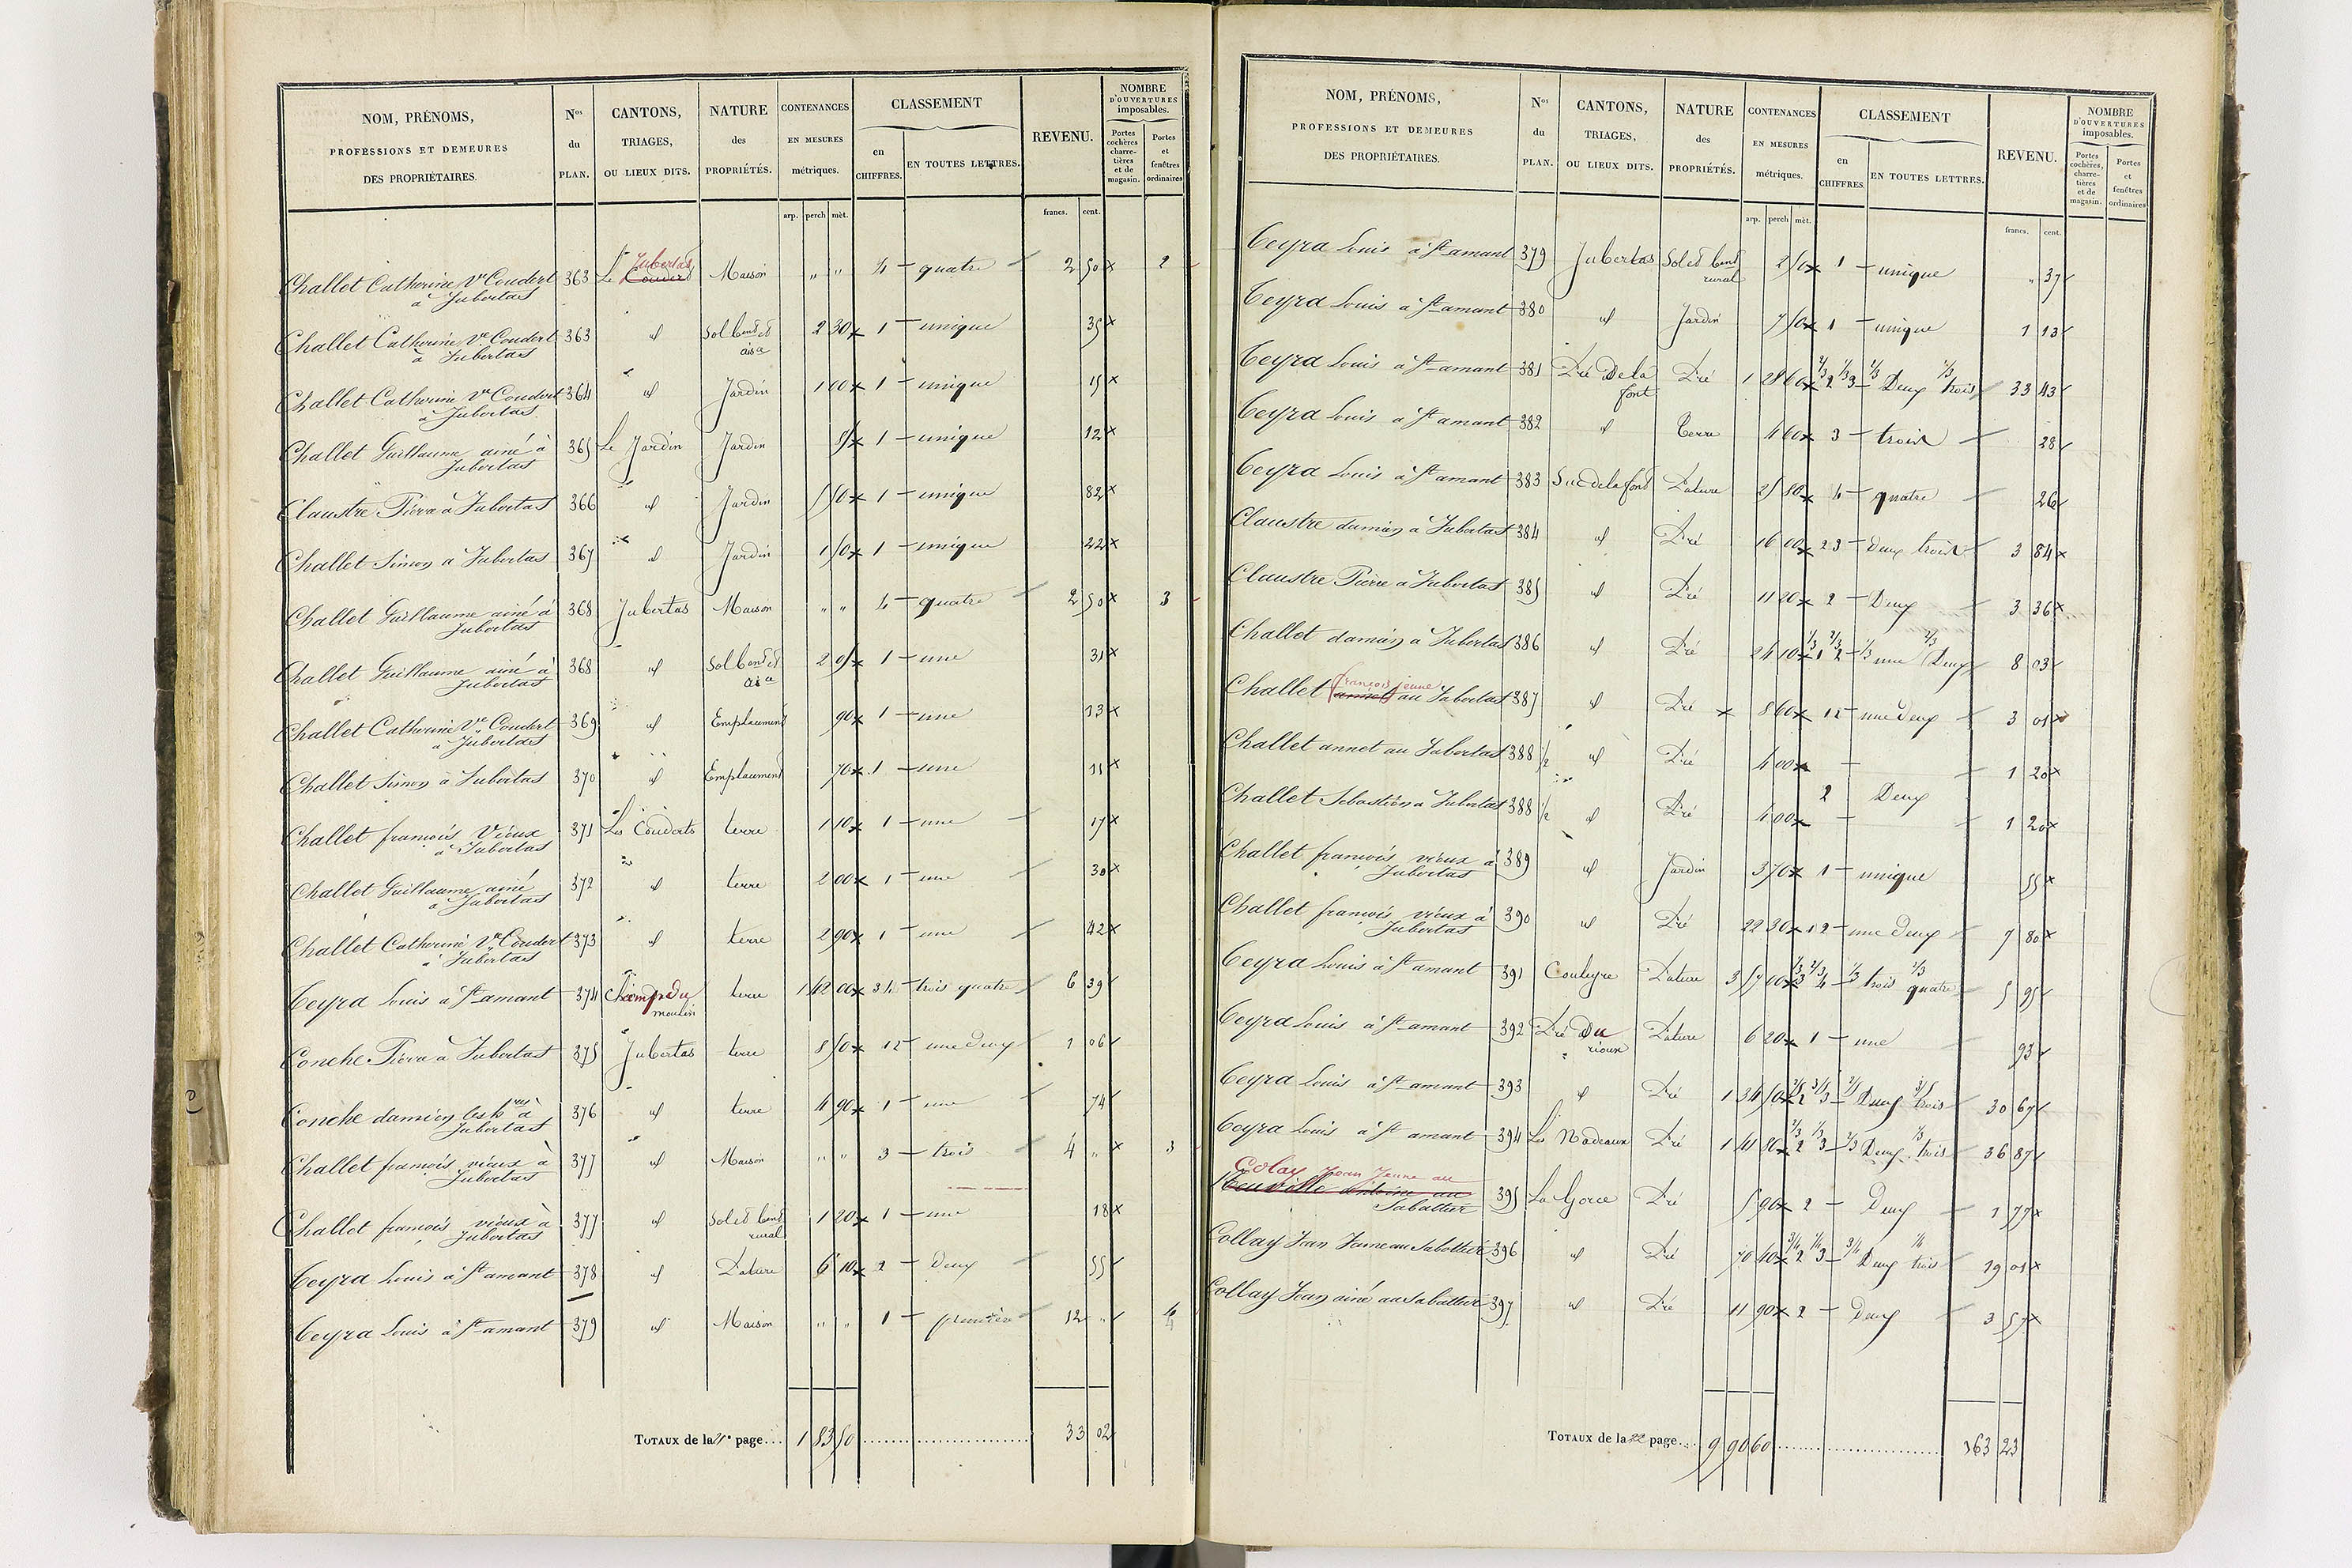 NOM, PRÉNOMS,
PROFESSIONS ET DEMEURES
DES PROPRIÉTAIRES.
Nos
du
PLAN.
CANTONS,
TRIAGES,
OU LIEUX DITS.
NATURE
des
PROPRIÉTÉS.
CONTENANCES
EN MESURES
métriques.
CLASSEMENT
en
CHIFFRES.
EN TOUTES LETTRES.
REVENU.
NOMBRE
D'OUVERTURES
imposables.
Portes
cochères
charre-
tières
et de
magasin.
Portes
et
fenêtres
ordinaires
arp. perch mèt.
francs. cent.
Jubertas
Challet Catherine Ve Coudert 363 Le Couderd Maison " " 4 quatre 2 50 x 2
à Jubertas
Challet Catherine Ve Coudert 363 id 2 30 x 1 unique 35 x
à Jubertas
Challet Catherine Ve Coudert 364 id Jardin 1 00 x 1 unique 15 x
à Jubertas
Challet Guillaume ainé à 365 Le Jardin Jardin 1 unique 12 x
Jubertas
Claustre Pierre à Jubertas 366 id Jardin 5 50 x 1 unique 82 x
Challet Simon à Jubertas 367 id Jardin 1 50 x 1 unique 22 x
Challet Guillaume ainé à 368 Jubertas Maison " " 4 quatre 2 50 x 3
Jubertas
Challet Guillaume ainé à 368 id 2 05 x 1 une 31 x
Jubertas
Challet Catherine Ve Coudert 369 id Emplacement 90 x 1 une 13 x
à Jubertas
Challet Simon à Jubertas 370 id Emplacement 70 x 1 une 11 x
Challet francois Vieux 371 Les Couderts terre 1 10 x 1 une 17 x
à Jubertas
Challet Guillaume ainé 372 id terre 2 00 x 1 une 30 x
à Jubertas
Challet Catherine Ve Coudert 373 id terre 2 90 x 1 une 42 x
à Jubertas
Ceyra Louis à St amant 374 Champ du terre 1 42 00 x 3 4 trois quatre 6 39
moulin
Conche Pierre à Jubertas 375 Jubertas terre 8 50 x 1 2 une deux 1 06
Conche damien les hres à 376 id terre 4 90 x 1 une 74
Jubertas
Challet francois vieux à 377 id Maison " " 3 trois 4 " x 3
Jubertas
Challet francois vieux à 377 id Sol et bend 1 20 x 1 une 18 x
Jubertas rural
Ceyra Louis à St amant 378 id Pature 6 10 x 2 Deux 55
Ceyra Louis à St amant 379 id Maison " " 1 première 12 " 4
TOTAUX de la 21e page... 1 83 50 33 02
NOM, PRÉNOMS,
PROFESSIONS ET DEMEURES
DES PROPRIÉTAIRES.
Nos
du
PLAN.
CANTONS,
TRIAGES,
OU LIEUX DITS.
NATURE
des
PROPRIÉTÉS.
CONTENANCES
EN MESURES
métriques.
CLASSEMENT
en
CHIFFRES.
EN TOUTES LETTRES.
REVENU.
NOMBRE
D'OUVERTURES
imposables.
Portes
cochères,
charre-
tières
et de
magasin.
Portes
et
fenêtres
ordinaires
arp. perch mèt.
francs. cent.
Ceyra Louis à St amant 379 Jubertas Sol et bend 2 50 x 1 unique " 37
rural
Ceyra Louis à St amant 380 id Jardin 7 50 x 1 unique 1 13
Ceyra Louis à St amant 381 Pré De la Pré 1 28 60 x 2/3 2 1/3 3 Deux 1/3 trois 33 43
font
Ceyra Louis à St amant 382 id Terre 4 60 x 3 trois 28
Ceyra Louis à St amant 383 Suc de la font Pature 25 80 x 4 quatre 26
Claustre damien à Jubertas 384 id Pré 16 00 x 2 3 Deux trois 3 84 x
Claustre Pierre à Jubertas 385 id Pré 11 20 x 2 Deux 3 36 x
Challet damien à Jubertas 386 id Pré 24 10 x 1/3 1 2/3 2 1/3 une 2/3 Deux 8 03
francois jeune
Challet annet au Jubertas 387 id Pré x 8 60 x 1 2 une deux 3 01 x
Challet annet au Jubertas 388 1/2 id Pré 4 00 x 1 20 x
2 Deux
Challet Sebastien à Jubertas 388 1/2 id Pré 4 00 x 1 20 x
Challet francois vieux à 389 id Jardin 3 70 x 1 unique 55 x
Jubertas
Challet francois vieux à 390 id Pré 22 30 x 1 2 une deux 7 80 x
Jubertas
Ceyra Louis à St amant 391 Couleyre Pature 3 57 00 x 1/3 3 2/3 4 1/3 trois 2/3 quatre 5 95
Ceyra Louis à St amant 392 Pré Du Pature 6 20 x 1 une 93
rioux
Ceyra Louis à St amant 393 id Pré 1 34 50 x 2/5 2 3/5 3 2/5 Deux 3/5 trois 30 67
Ceyra Louis à St amant 394 Les Nadeaux Pré 1 41 80 x 2/3 2 1/3 3 2/3 Deux 1/3 trois 36 87
Colay Jean Jeune au
Neuville Antoine au 395 La Gorce Pré 5 90 x 2 Deux 1 77 x
Sabattier
Collay Jean Jeune au Sabattier 396 id Pré 70 40 x 3/4 2 1/4 3 3/4 Deux 1/4 trois 19 01 x
Collay Jean ainé au Sabattier 397 id Pré 11 90 x 2 Deux 3 57 x
TOTAUX de la 22 page... 9 90 60 163 23